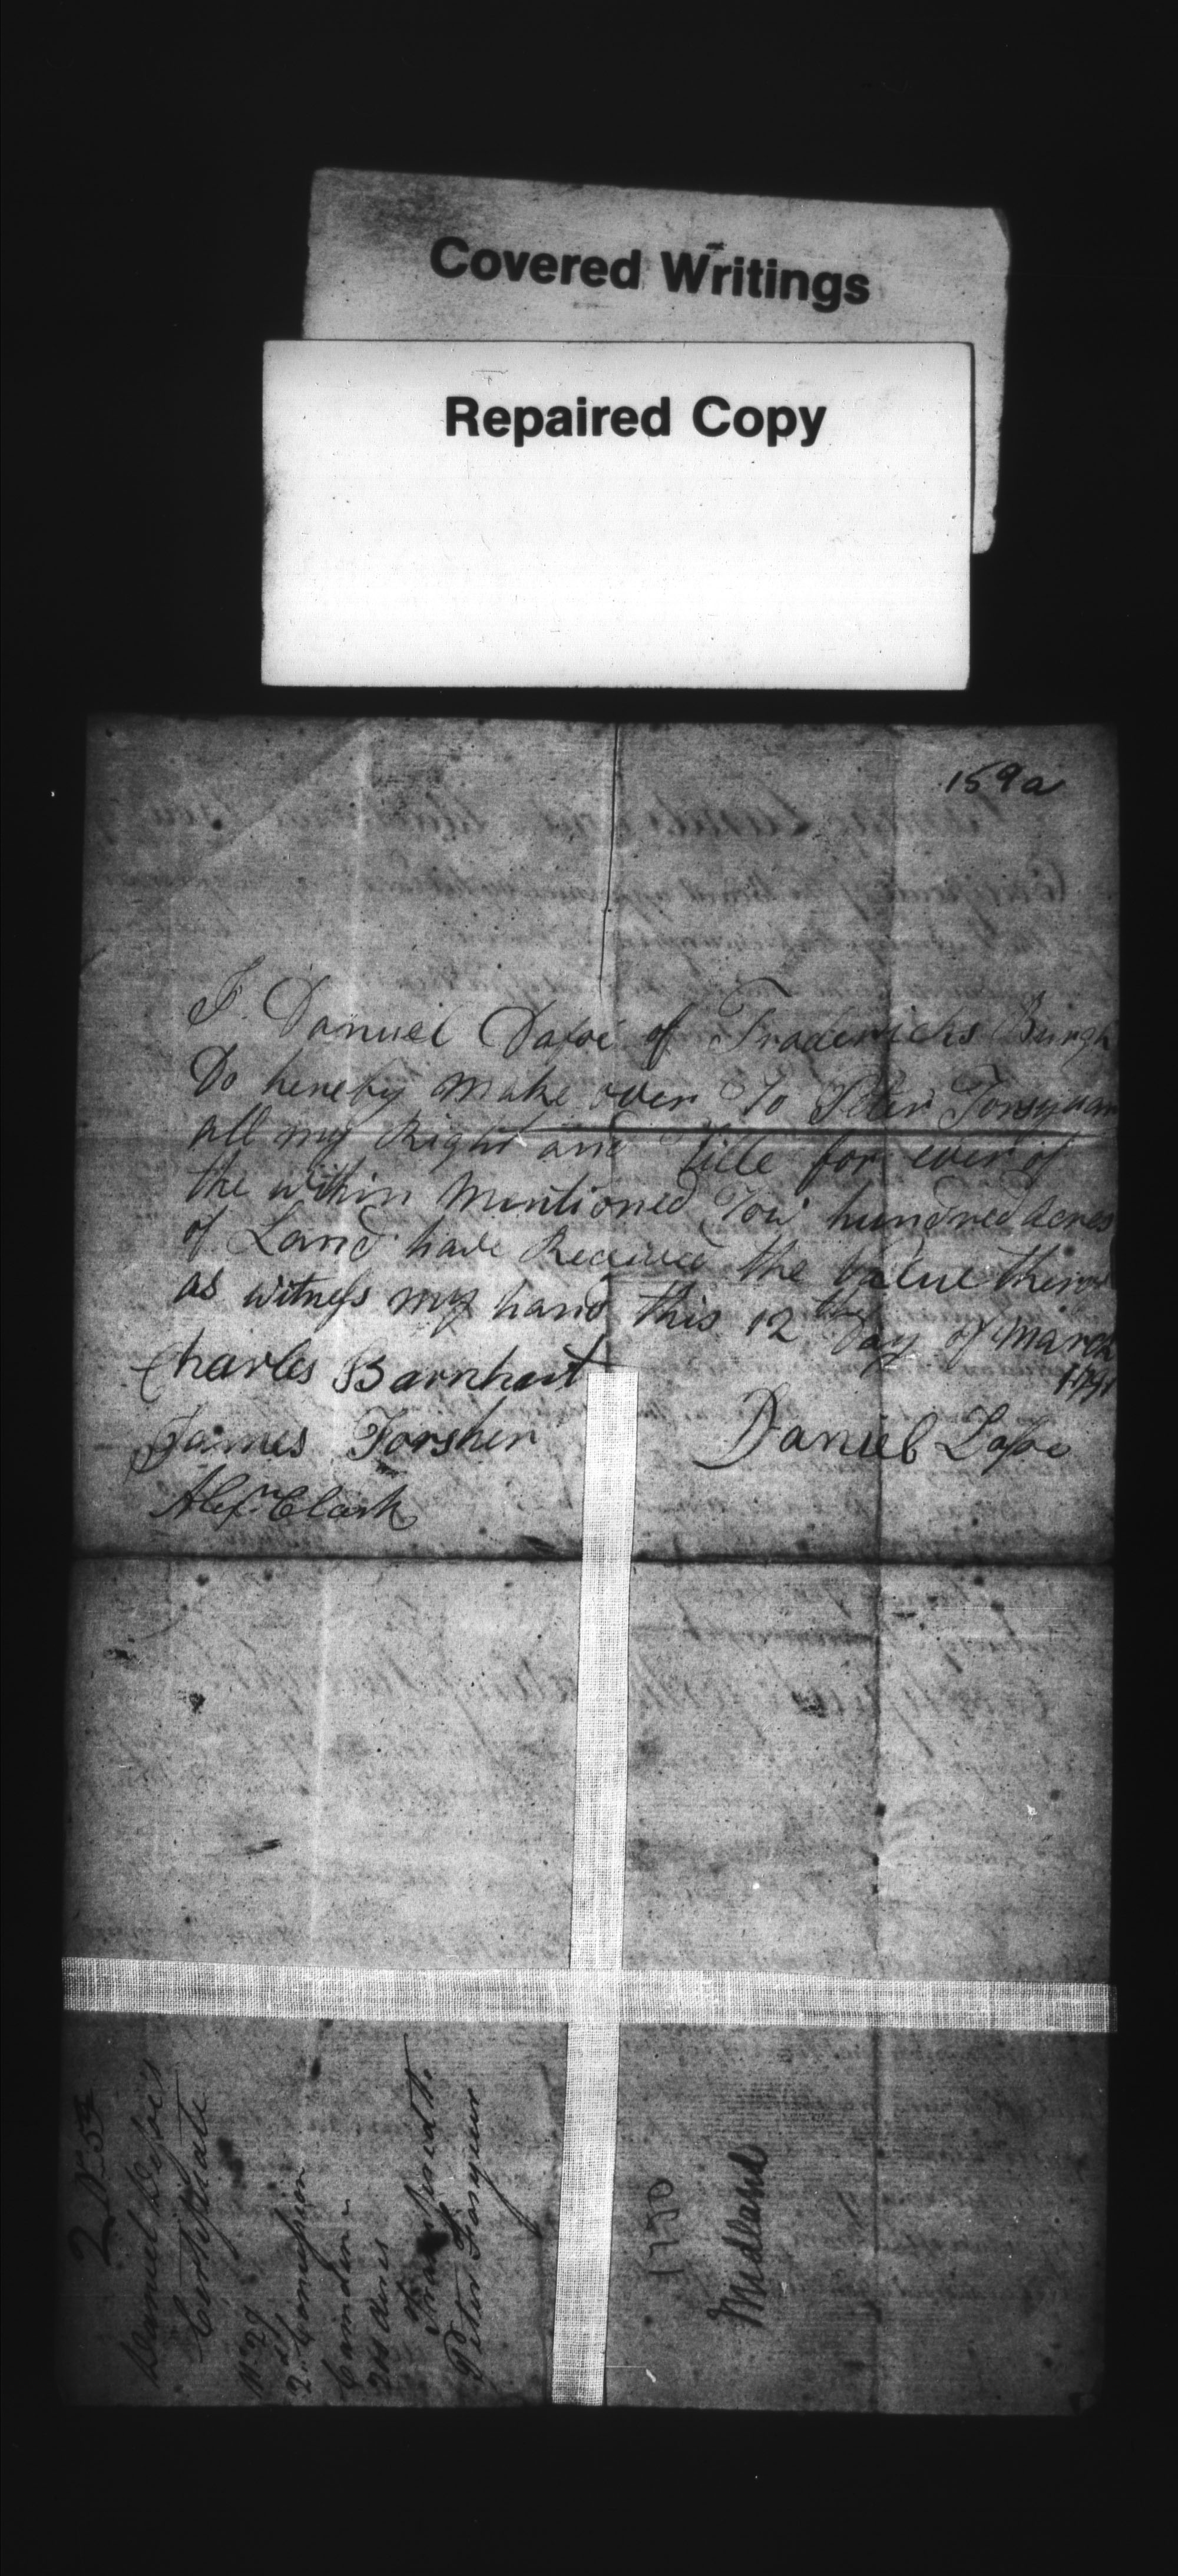 Covered Writings
Repaired Copy
159a
I Daniel Dafoe of Fradericks Burgh
Do hereby make over To Peter Forsyuer
all my Right and Title for ever of
the within Mentioned Tow hundred acres
of Land have Received the Value thereof
as witness my hand this 12 the Day of March
Charles Barnhart
James Forsher
Daniel Dafoe
Alexr. Clark
Daniel Dafoe's
Certificate
No 29
2d Concession
Camden
200 Acres
Transfered to
Peter
Midland